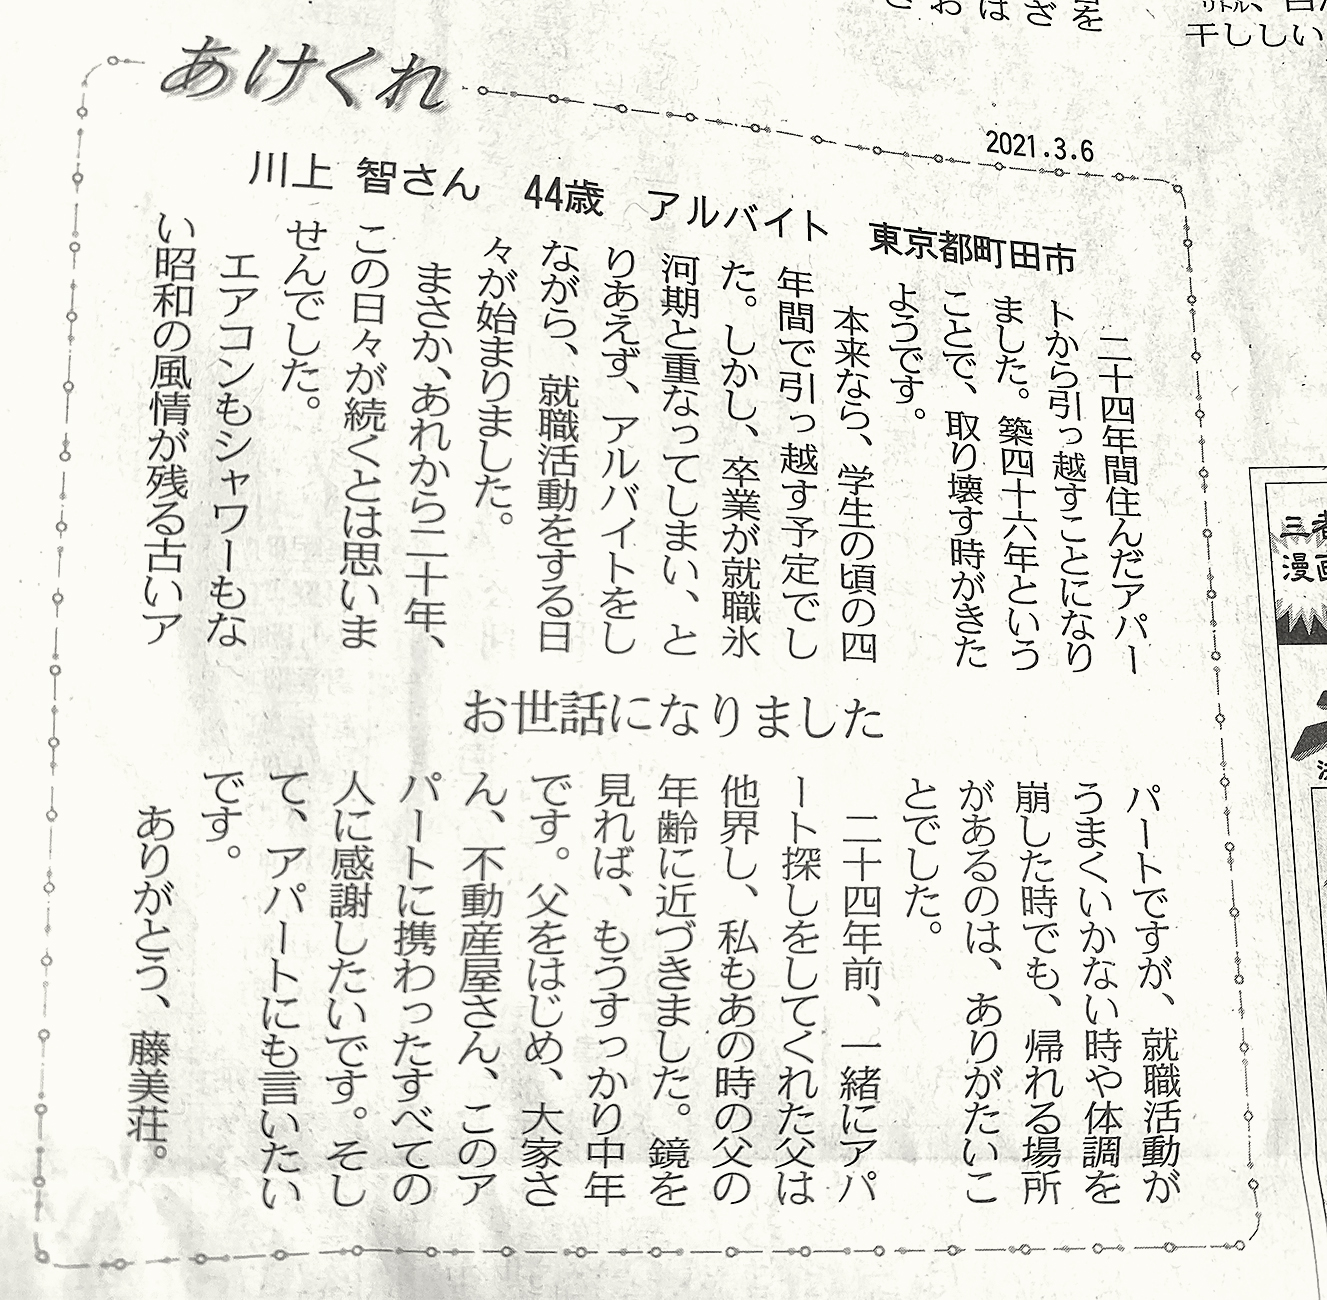 あけくれ
2021.3.6
川上 智さん　44歳　アルバイト　東京都町田市
お世話になりました
二十四年間住んだアパー
トから引っ越すことになり
ました。築四十六年という
ことで、取り壊す時がきた
ようです。
本来なら、学生の頃の四
年間で引っ越す予定でし
た。しかし、卒業が就職氷
河期と重なってしまい、と
りあえず、アルバイトをし
ながら、就職活動をする日
々が始まりました。
まさか、あれから二十年、
この日々が続くとは思いま
せんでした。
エアコンもシャワーもな
い昭和の風情が残る古いア
パートですが、就職活動が
うまくいかない時や体調を
崩した時でも、帰れる場所
があるのは、ありがたいこ
とでした。
二十四年前、一緒にアパ
ート探しをしてくれた父は
他界し、私もあの時の父の
年齢に近づきました。鏡を
見れば、もうすっかり中年
です。父をはじめ、大家さ
ん、不動産屋さん、このア
パートに携わったすべての
人に感謝したいです。そし
て、アパートにも言いたい
です。
ありがとう、藤美荘。
干ししい